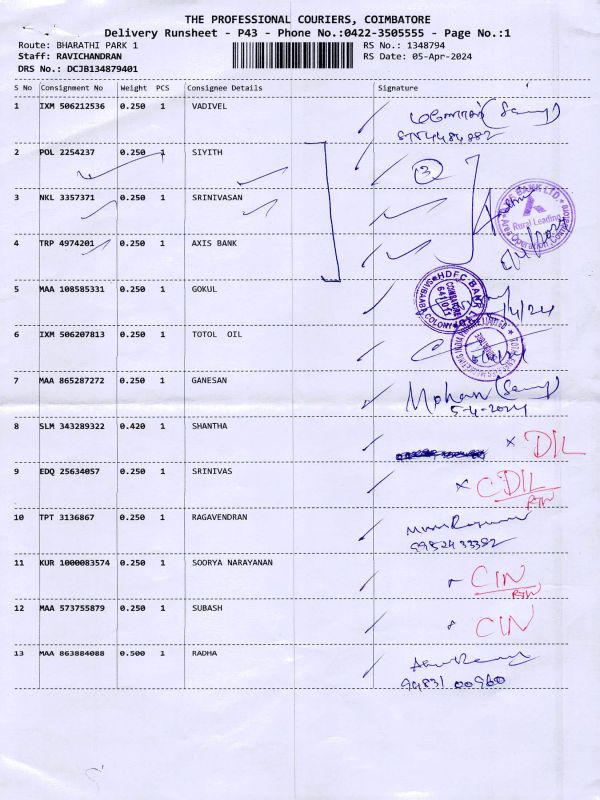 THE PROFESSIONAL COURIERS, COIMBATORE
Delivery Runsheet - P43 - Phone No.:0422-3505555 - Page No.:1
Route: BHARATHI PARK 1 RS No.: 1348794
Staff: RAVICHANDRAN RS Date: 05-Apr-2024
DRS No.: DCJB134879401
S No Consignment No Weight PCS Consignee Details Signature
1 IXM 506212536 0.250 1 VADIVEL
2 POL 2254237 0.250 1 SIYITH
3
3 NKL 3357371 0.250 1 SRINIVASAN
BANK LTD.
Rural Lending
4 TRP 4974201 0.250 1 AXIS BANK
5 MAA 108585331 0.250 1 GOKUL
HDFC BANK
COIMBATORE
641 011
COLONY
6 IXM 506207813 0.250 1 TOTOL OIL
7 MAA 865287272 0.250 1 GANESAN
Mohan
5-4-2024
8 SLM 343289322 0.420 1 SHANTHA
x DIL
9 EDQ 25634057 0.250 1 SRINIVAS
x CDIL
10 TPT 3136867 0.250 1 RAGAVENDRAN
11 KUR 1000083574 0.250 1 SOORYA NARAYANAN
CIN
12 MAA 573755879 0.250 1 SUBASH
CIN
13 MAA 863884088 0.500 1 RADHA
99831 00960